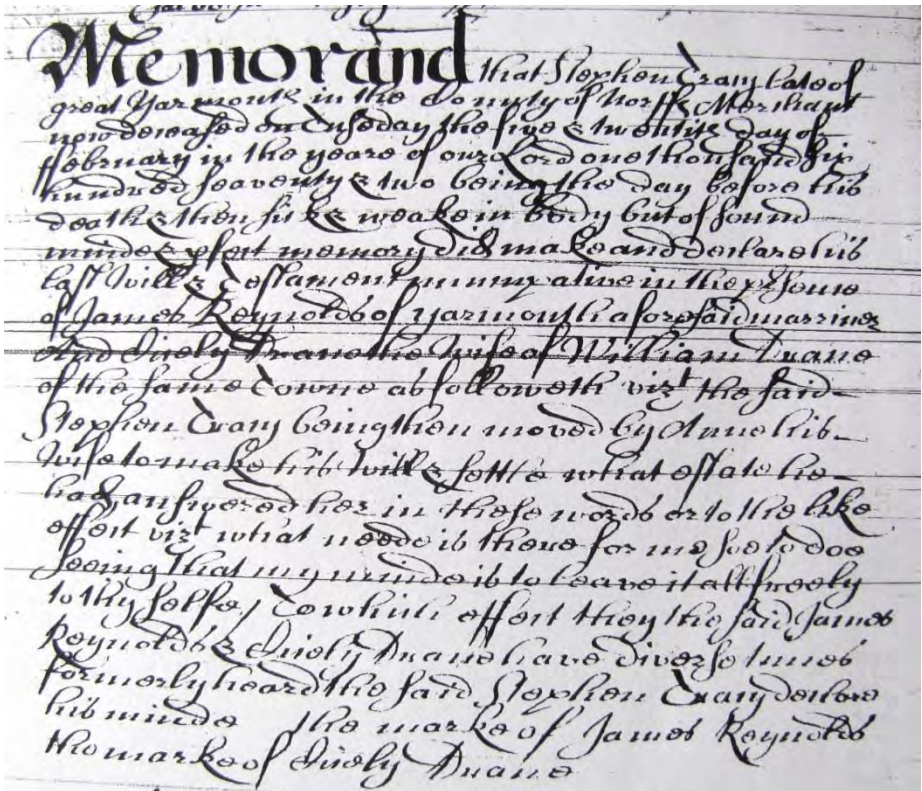 Memorand that Stephen Trany late of
great Yarmouth in the County of Norff Merchant
now deceased on Tuseday the five & twentith day of
ffebruary in the yeare of our Lord one thousand six
hundred seaventy & two being the day before his
death & then sicke & weake in body but of sound
minde & pfect memory did make and declare his
last Will & Testament nuncupative in the psence
of James Reynolds of Yarmouth aforesaid marriner
And Cicely Duane the Wife of William Duane
of the same Towne as followeth vizt the said
Stephen Trany being then moved by Anne his
Wife to make his Will & settle what estate he
had answered her in these words or to the like
effect vizt what neede is there for me soe to doe
seeing that my minde is to leave it all freely
to thy selfe / To which effect they the said James
Reynolds & Cicely Duane have diverse tymes
formerly heard the said Stephen Trany declare
his minde the marke of James Reynolds
the marke of Cicely Duane